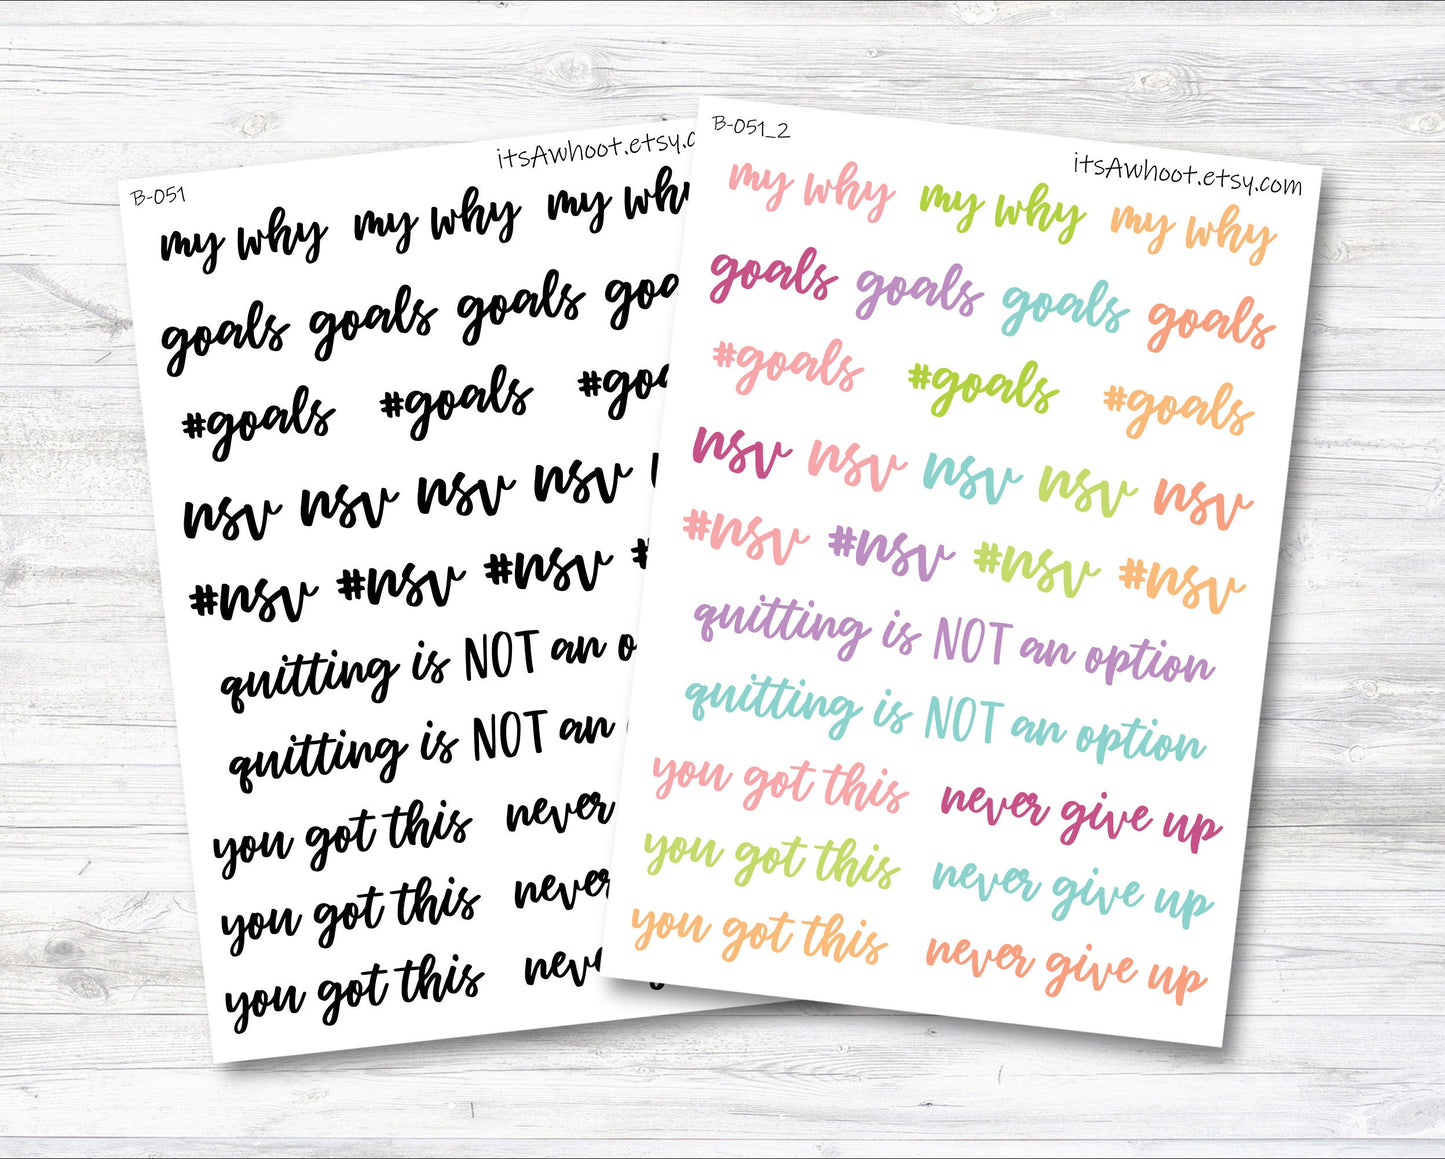 B-051
itsAwhoot.etsy.c
my why my why my wh
goals goals goals goa
#goals #goals #goa
nsv nsv nsv nsv
#nsv #nsv #nsv #
quitting is NOT an o
quitting is NOT an
you got this never
you got this never
you got this neve
B-051_2
itsAwhoot.etsy.com
my why my why my why
goals goals goals goals
#goals #goals #goals
nsv nsv nsv nsv nsv
#nsv #nsv #nsv #nsv
quitting is NOT an option
quitting is NOT an option
you got this never give up
you got this never give up
you got this never give up